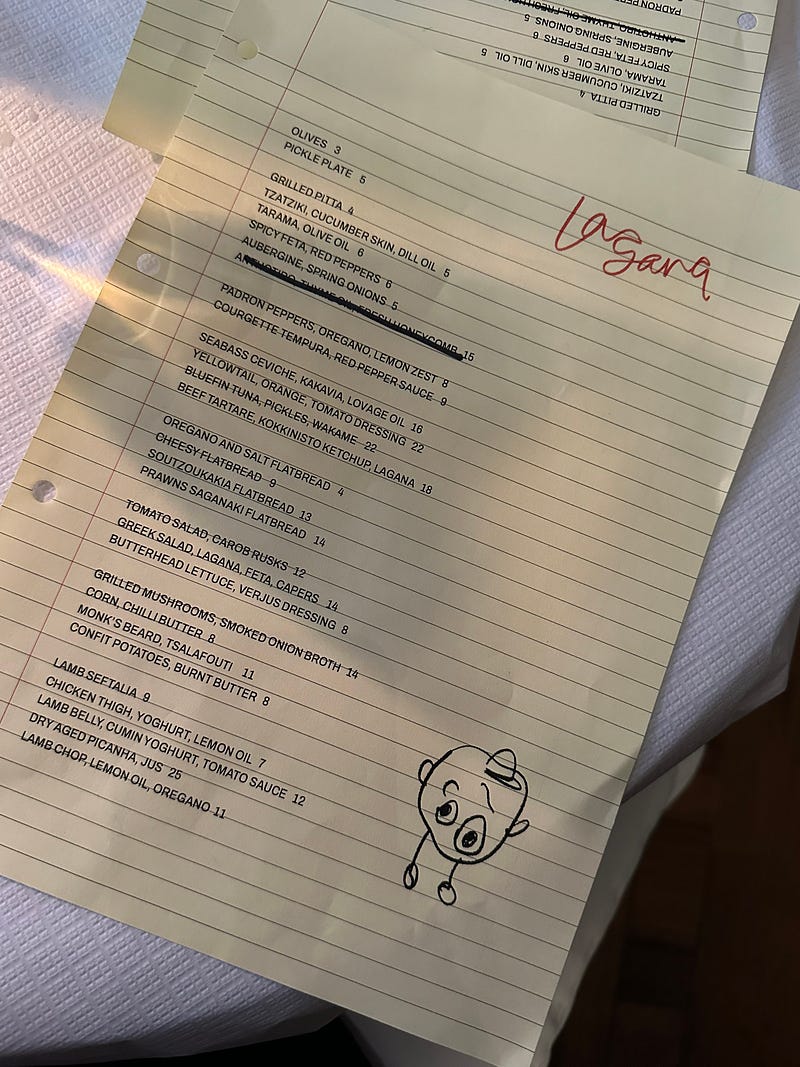 PADRON PEP
ANTHOTIRO, THYME OIL, FRESH HO
AUBERGINE, SPRING ONIONS 5
SPICY FETA, RED PEPPERS 6
TARAMA, OLIVE OIL 6
TZATZIKI, CUCUMBER SKIN, DILL OIL 5
GRILLED PITTA 4
Lagana
OLIVES 3
PICKLE PLATE 5
GRILLED PITTA 4
TZATZIKI, CUCUMBER SKIN, DILL OIL 5
TARAMA, OLIVE OIL 6
SPICY FETA, RED PEPPERS 6
AUBERGINE, SPRING ONIONS 5
ANTHOTIRO, THYME OIL, FRESH HONEYCOMB 15
PADRON PEPPERS, OREGANO, LEMON ZEST 8
COURGETTE TEMPURA, RED PEPPER SAUCE 9
SEABASS CEVICHE, KAKAVIA, LOVAGE OIL 16
YELLOWTAIL, ORANGE, TOMATO DRESSING 22
BLUEFIN TUNA, PICKLES, WAKAME 22
BEEF TARTARE, KOKKINISTO KETCHUP, LAGANA 18
OREGANO AND SALT FLATBREAD 4
CHEESY FLATBREAD 9
SOUTZOUKAKIA FLATBREAD 13
PRAWNS SAGANAKI FLATBREAD 14
TOMATO SALAD, CAROB RUSKS 12
GREEK SALAD, LAGANA, FETA, CAPERS 14
BUTTERHEAD LETTUCE, VERJUS DRESSING 8
GRILLED MUSHROOMS, SMOKED ONION BROTH 14
CORN, CHILLI BUTTER 8
MONK'S BEARD, TSALAFOUTI 11
CONFIT POTATOES, BURNT BUTTER 8
LAMB SEFTALIA 9
CHICKEN THIGH, YOGHURT, LEMON OIL 7
LAMB BELLY, CUMIN YOGHURT, TOMATO SAUCE 12
DRY AGED PICANHA, JUS 25
LAMB CHOP, LEMON OIL, OREGANO 11